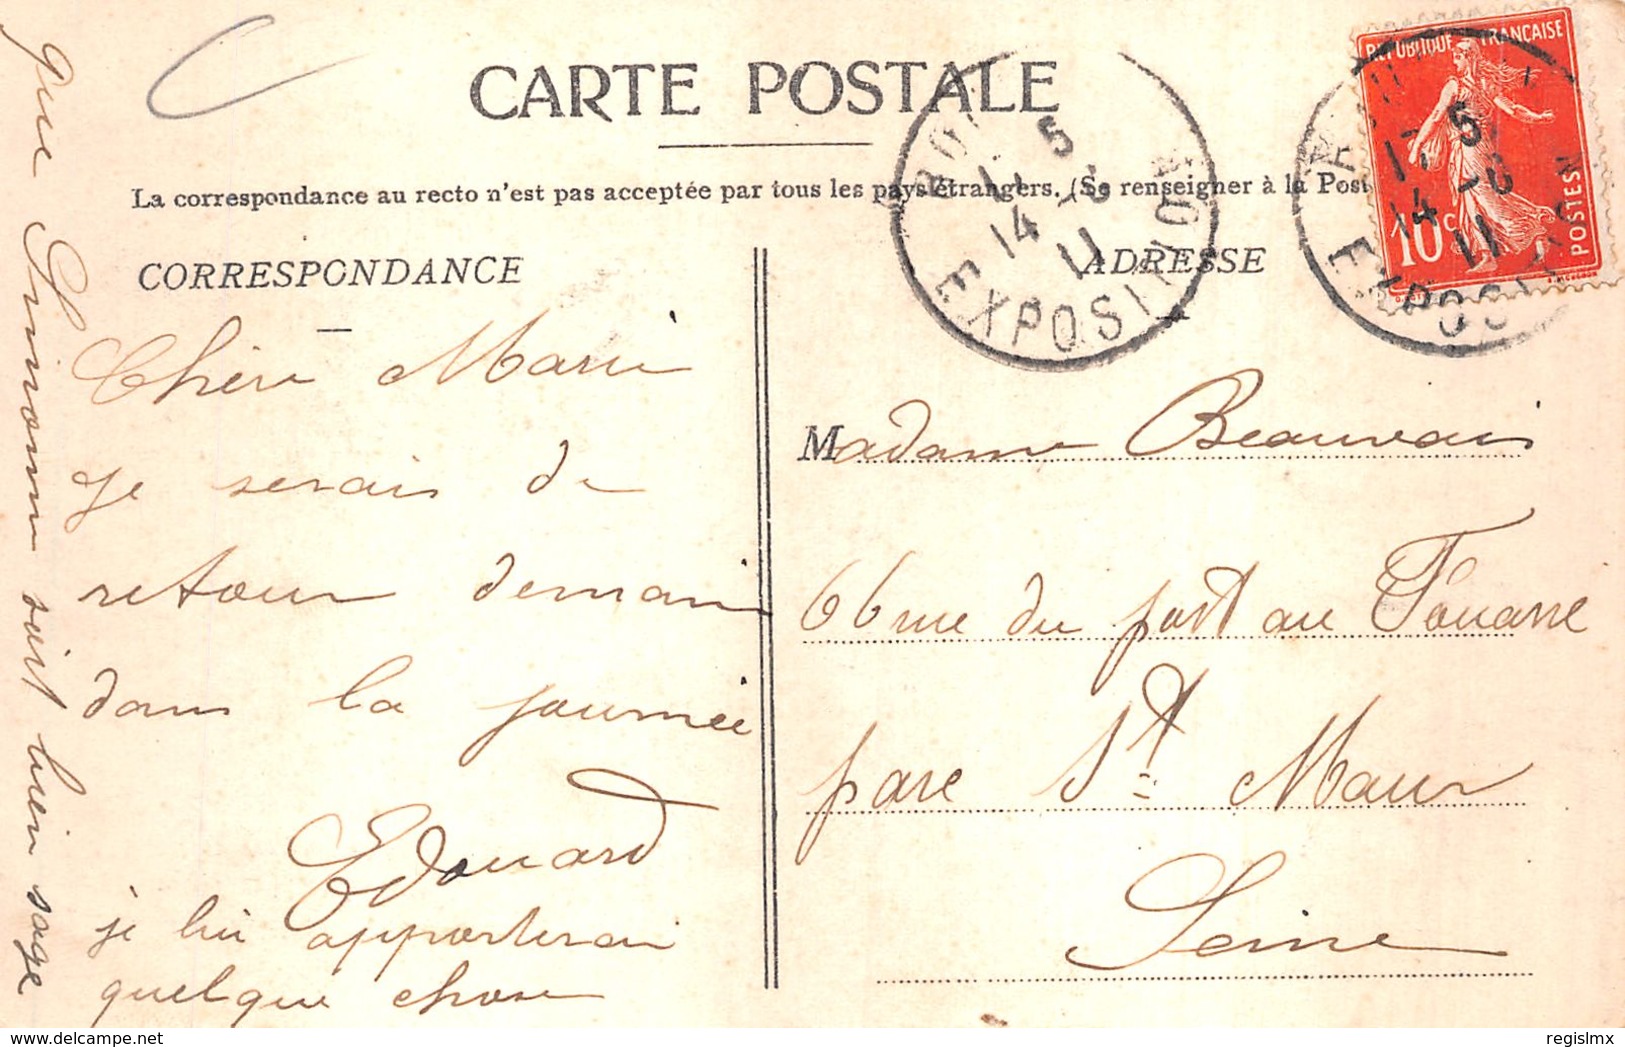 CARTE POSTALE
La correspondance au recto n'est pas acceptée par tous les pays étrangers. (Se renseigner à la Post
CORRESPONDANCE
ADRESSE
REPUBLIQUE FRANÇAISE
10c
POSTES
5
14 -6
11
EXPOSITION
17 5
14 -6
11
EXPOSITION
Chère Marie
Je serais de
retour demain
dans la journée
Edouard
je lui apporterai
quelque chose
que Simonne soit bien sage
Madame Beauvais
66 rue du port au Fouarre
parc St Maur
Seine
regislmx